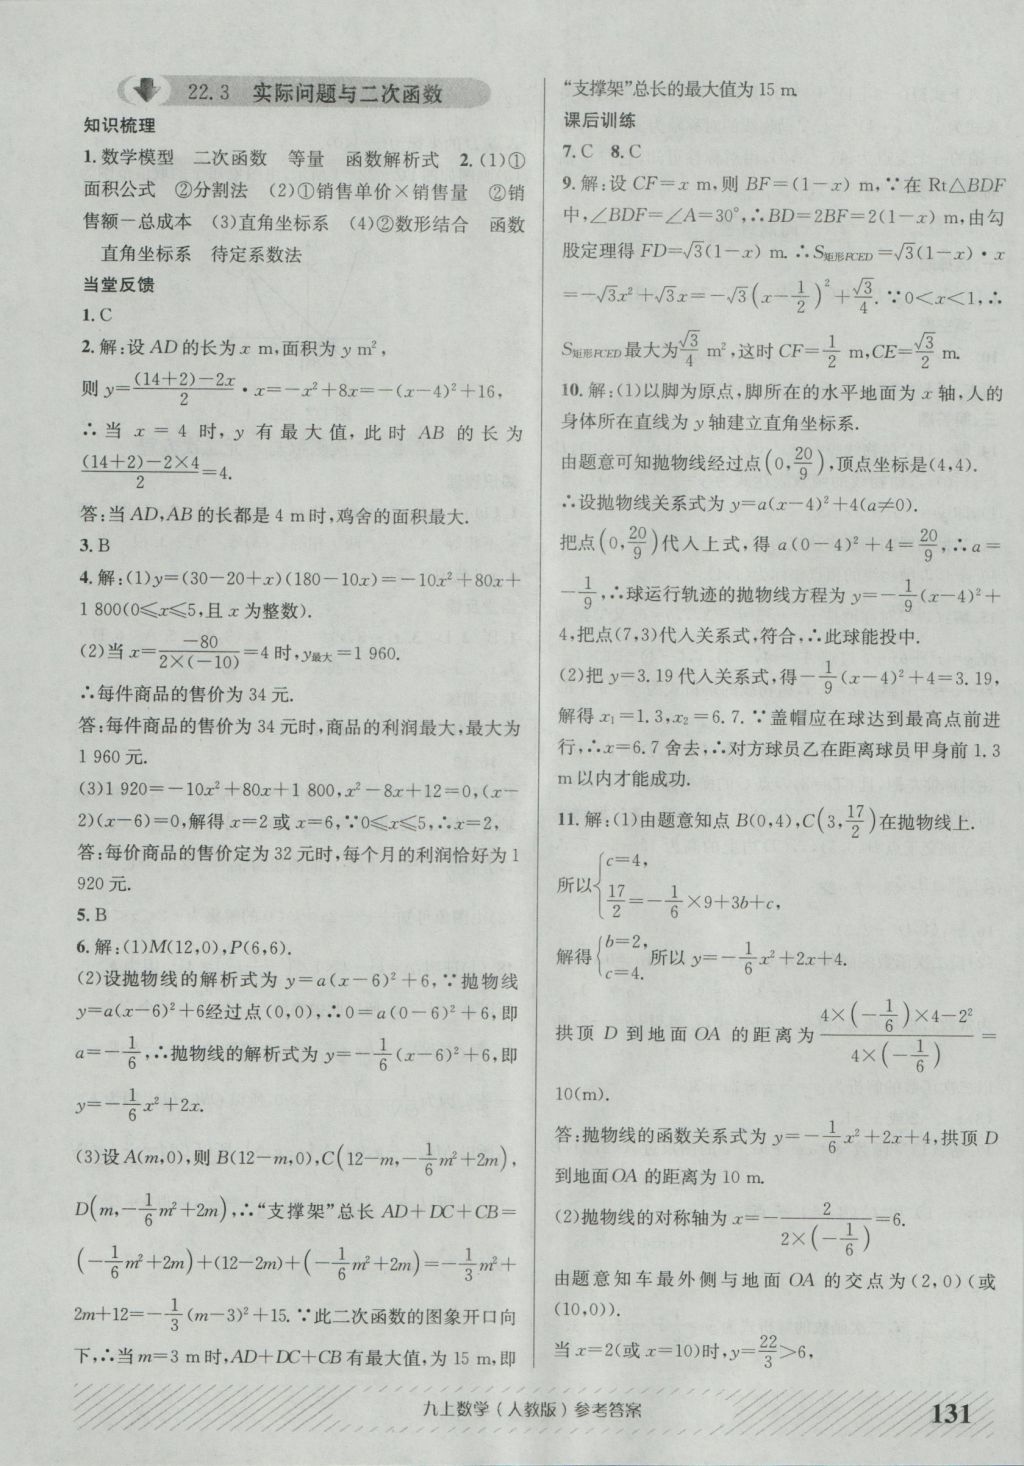 22.3 实际问题与二次函数
知识梳理
1.数学模型 二次函数 等量 函数解析式 2.(1)①
面积公式 ②分割法 (2)①销售单价×销售量 ②销
售额－总成本 (3)直角坐标系 (4)②数形结合 函数
直角坐标系 待定系数法
当堂反馈
1.C
2.解:设 AD 的长为 x m,面积为 y m²,
则 y=\frac{(14+2)-2x}{2}·x=-x²+8x=-(x-4)²+16,
∴当 x=4 时,y 有最大值,此时 AB 的长为
\frac{(14+2)-2×4}{2}=4.
答:当 AD,AB 的长都是 4 m时,鸡舍的面积最大.
3.B
4.解:(1)y=(30-20+x)(180-10x)=-10x²+80x+
1 800(0⩽x⩽5,且 x 为整数).
(2)当 x=\frac{-80}{2×(-10)}=4 时,y最大=1 960.
∴每件商品的售价为 34 元.
答:每件商品的售价为 34 元时,商品的利润最大,最大为
1 960 元.
(3)1 920=-10x²+80x+1 800,x²-8x+12=0,(x-
2)(x-6)=0,解得 x=2 或 x=6,∵0⩽x⩽5,∴x=2,
答:每价商品的售价定为 32 元时,每个月的利润恰好为 1
920 元.
5.B
6.解:(1)M(12,0),P(6,6).
(2)设抛物线的解析式为 y=a(x-6)²+6,∵抛物线
y=a(x-6)²+6经过点(0,0),∴0=a(0-6)²+6,即
a=-\frac{1}{6},∴抛物线的解析式为 y=-\frac{1}{6}(x-6)²+6,即
y=-\frac{1}{6}x²+2x.
(3)设 A(m,0),则 B(12-m,0),C(12-m,-\frac{1}{6}m²+2m),
D(m,-\frac{1}{6}m²+2m),∴“支撑架”总长 AD+DC+CB=
(-\frac{1}{6}m²+2m)+(12-2m)+(-\frac{1}{6}m²+2m)=-\frac{1}{3}m²+
2m+12=-\frac{1}{3}(m-3)²+15.∵此二次函数的图象开口向
下,∴当 m=3 m时,AD+DC+CB 有最大值,为 15 m,即
“支撑架”总长的最大值为 15 m.
课后训练
7.C 8.C
9.解:设 CF=x m,则 BF=(1-x) m,∵在 Rt△BDF
中,∠BDF=∠A=30°,∴BD=2BF=2(1-x) m,由勾
股定理得 FD=√3(1-x) m.∴S矩形FCED=√3(1-x)·x
=-√3x²+√3x=-√3(x-\frac{1}{2})²+\frac{√3}{4}.∵0<x<1,∴
S矩形FCED最大为\frac{√3}{4} m²,这时 CF=\frac{1}{2} m,CE=\frac{√3}{2} m.
10.解:(1)以脚为原点,脚所在的水平地面为 x 轴,人的
身体所在直线为 y 轴建立直角坐标系.
由题意可知抛物线经过点(0,\frac{20}{9}),顶点坐标是(4,4).
∴设抛物线关系式为 y=a(x-4)²+4(a≠0).
把点(0,\frac{20}{9})代入上式,得 a(0-4)²+4=\frac{20}{9},∴a=
-\frac{1}{9},∴球运行轨迹的抛物线方程为 y=-\frac{1}{9}(x-4)²+
4,把点(7,3)代入关系式,符合,∴此球能投中.
(2)把 y=3.19 代入关系式,得-\frac{1}{9}(x-4)²+4=3.19,
解得 x₁=1.3,x₂=6.7.∵盖帽应在球达到最高点前进
行,∴x=6.7 舍去,∴对方球员乙在距离球员甲身前 1.3
m 以内才能成功.
11.解:(1)由题意知点 B(0,4),C(3,\frac{17}{2})在抛物线上.
所以{c=4, \frac{17}{2}=-\frac{1}{6}×9+3b+c,
解得{b=2, c=4. 所以 y=-\frac{1}{6}x²+2x+4.
拱顶 D 到地面 OA 的距离为 \frac{4×(-\frac{1}{6})×4-2²}{4×(-\frac{1}{6})} =
10(m).
答:抛物线的函数关系式为 y=-\frac{1}{6}x²+2x+4,拱顶 D
到地面OA 的距离为 10 m.
(2)抛物线的对称轴为 x=-\frac{2}{2×(-\frac{1}{6})}=6.
由题意知车最外侧与地面 OA 的交点为(2,0)(或
(10,0)).
当 x=2(或 x=10)时,y=\frac{22}{3}>6,
九上数学(人教版)参考答案
131